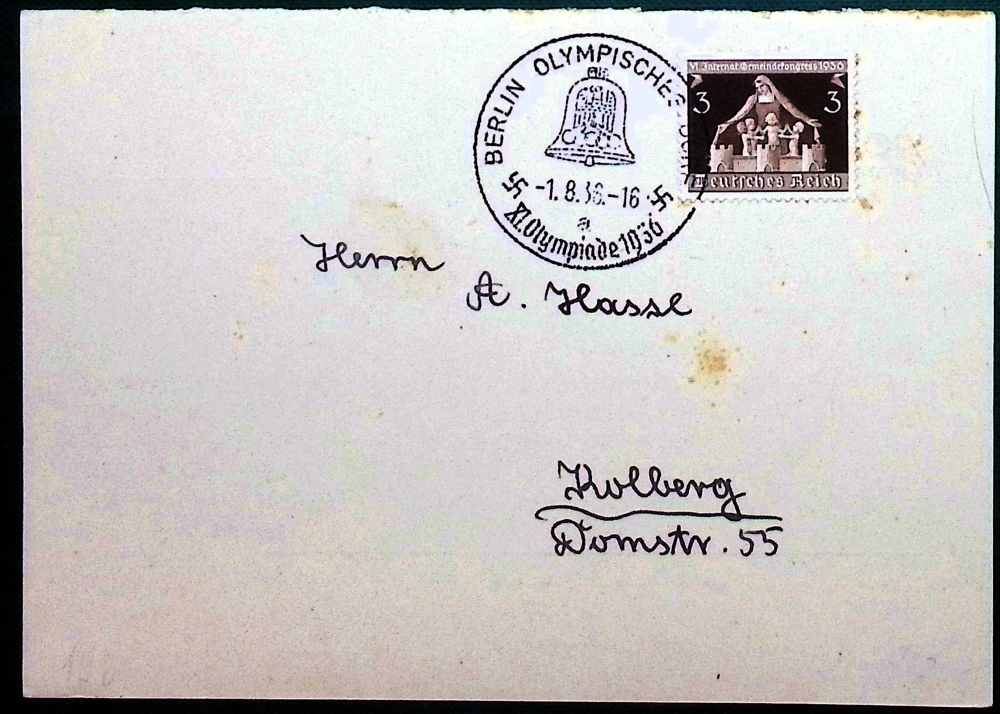 BERLIN OLYMPISCHES
-1.8.36.-16
a
XI. Olympiade 1936
VI. Internat. Gemeindekongress 1936
3 3
Deutsches Reich
Herrn
A. Hasse
Kolberg
Domstr. 55